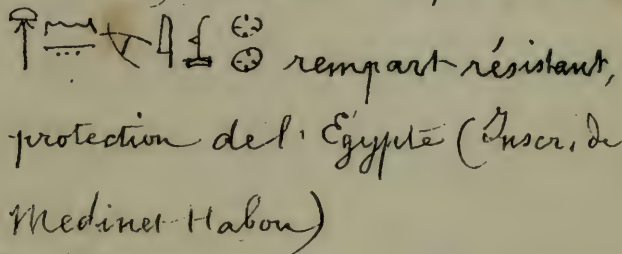 rempart résistant,
protection de l'Égypte (Inscr. de
Medinet-Habou)